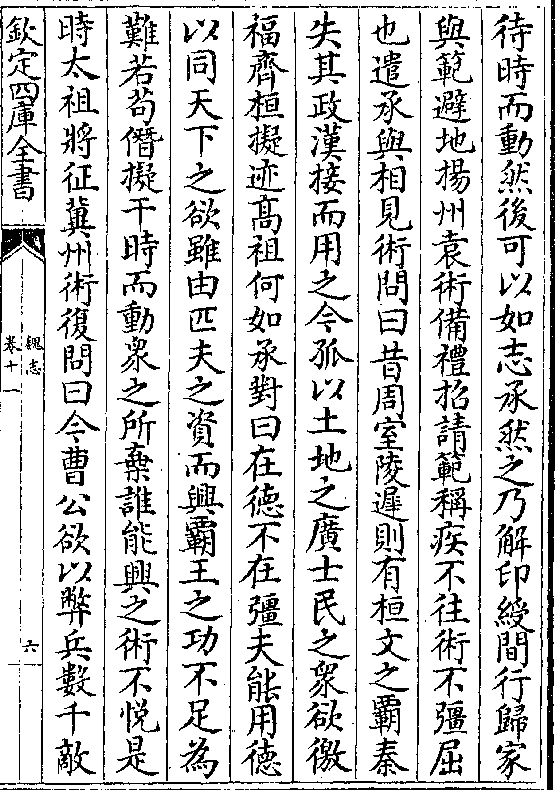 待時而動然後可以如志承然之乃解印綬間行歸家
與範避地揚州袁術備禮招請範稱疾不往術不彊屈
也遣承與相見術問曰昔周室陵遲則有桓文之霸秦
失其政漢接而用之今孤以土地之廣士民之衆欲徼
福齊桓擬迹髙祖何如承對曰在德不在彊夫能用德
以同天下之欲雖由匹夫之資而興霸王之功不足為
難若苟僭擬干時而動衆之所棄誰能興之術不悦是
時太祖將征冀州術復問曰今曹公欲以弊兵數千敵
欽定四庫全書
魏志
卷十一
六